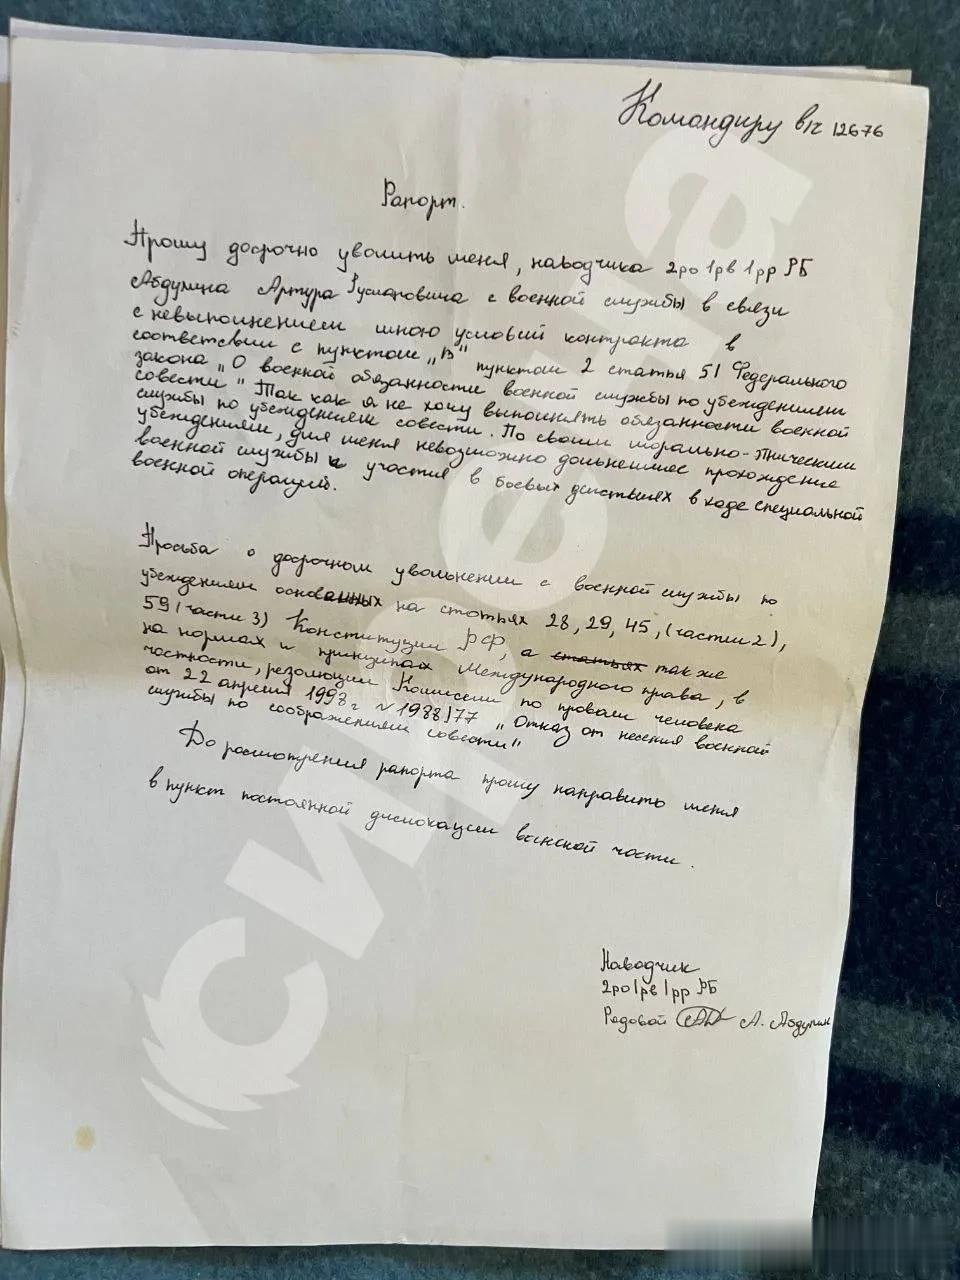 Командиру в/ч 12676
Рапорт.
Прошу досрочно уволить меня, наводчика 2ро 1рв 1рр РБ
Абдулина Артура Руслановича с военной службы в связи
с невыполнением мною условий контракта в
соответсвии с пунктом „В" пунктом 2 статья 51 Федерального
закона „О военной обязанности военной службы по убеждениям
совести" Так как я не хочу выполнять обязанности военной
службы по убеждениям совести. По своим морально-этническим
убеждениям, для меня невозможно дальнейшее прохождение
военной службы и участия в боевых действиях в ходе специальной
военной операций.
Просьба о досрочном увольнении с военной службы по
убеждениям основанных на статьях 28, 29, 45, (части 2),
59 (части 3) Конституции РФ, а статьях также
на нормах и принципах Международного права, в
частности, резолюции Комиссии по правам человека
от 22 апреля 1998г № 1988/77 „Отказ от несения военной
службы по соображениям совести"
До расмотрения рапорта прошу направить меня
в пункт постоянной дислокации воинской части.
Наводчик
2ро 1рв 1рр РБ
Рядовой А. Абдулин
сирена